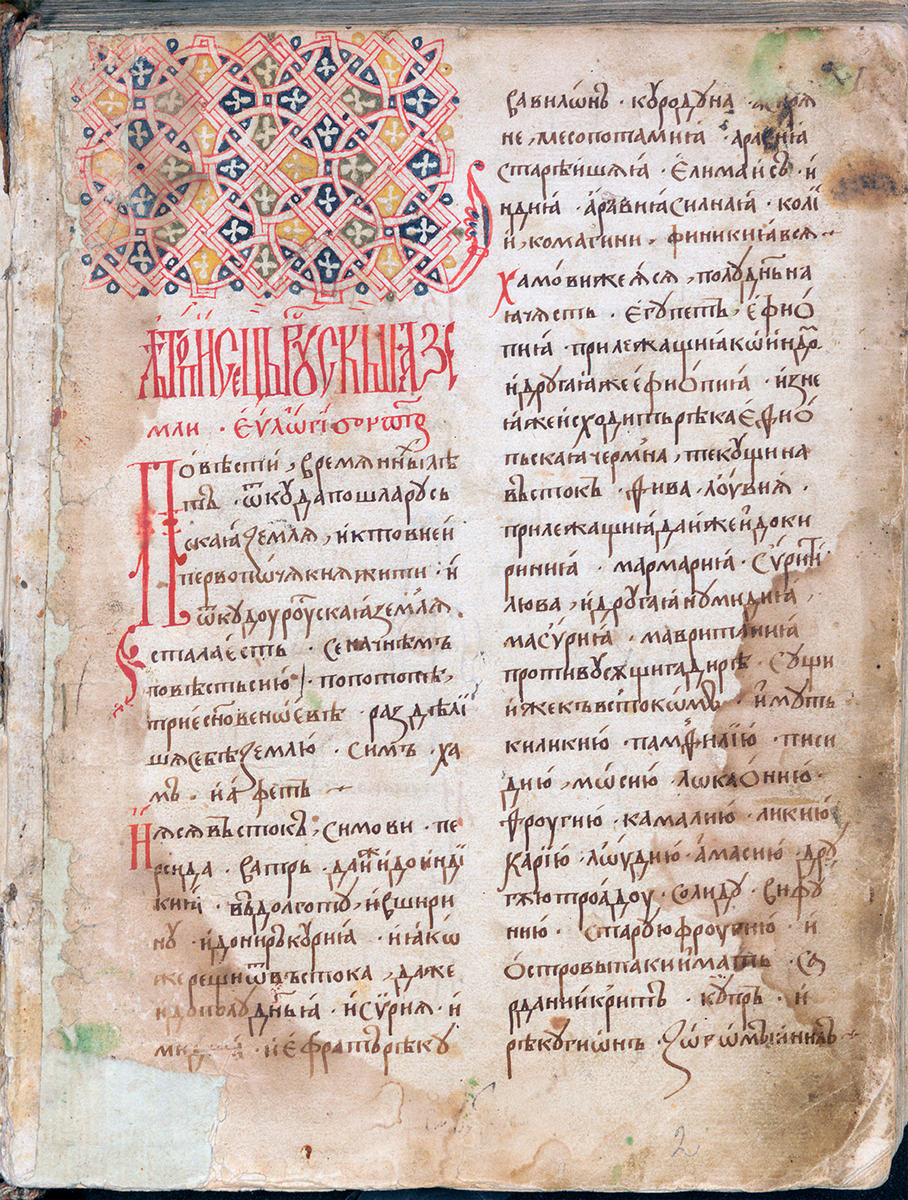 Лѣтописець Рускыꙗ зе
мли · б҃лгⷭ҇ви ѿч҃е
Повѣсти временныхъ лѣ
тъ · ѿкуда пошла русь
скаꙗ земля, и кто в ней
перво почя княжити · и
ѿкоудоу роускаꙗ земля
стала есть · се начнемъ
повѣсть сию · по потопѣ,
трие сн҃ве ноеви · раздѣли
шя себѣ землю · симъ · ха
мъ · и афетъ
Ияся въстокъ, симови · пе
рсида · ватръ · даже и до инди
киꙗ · въ долготу, и в шири
ну · и до нирокуриꙗ · ꙗкѡ
же рещи ѿ въстока, даже
и до полудньꙗ · и сурия · и
ми · и ефратъ рѣку
вавилѡнъ · кордуна ·
не, месопотамиꙗ · аравиꙗ
старѣишяꙗ · елимаисъ · и
ндиꙗ · аравиꙗ силнаꙗ · коли
и, комагини · финикиꙗ вся
хамови же яся, полудньна
ꙗ чясть · египетъ, ефиѡ
пиꙗ · прилежащиꙗ ко индом
и другаꙗ же ефиопиꙗ · из не
ꙗ же исходить рѣка ефио
пьскаꙗ чермна, текущи на
въстокъ · фива · лоувия ·
прилежащиꙗ даиже и до ки
риниꙗ · мармариꙗ · сурити
люва, и другаꙗ нумидиꙗ ·
масуриꙗ · мавританиꙗ
противу сущи гадирѣ · сущи
иже къ въстокомъ · имуть
киликию · памфилию · писи
дию, мѡсию · лѡкаонию ·
фроугию · камалию · ликию
карию · лѡудию · амасию · дру
гую трѡадоу · солиду · вифу
нию · старую фроугию · и
островы таки имать · са
рдании критъ · купръ · и
рѣку гиѡнъ · зовомыи нилъ
2